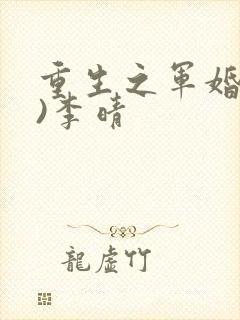 重生之军婚
)李晴
龍虛竹